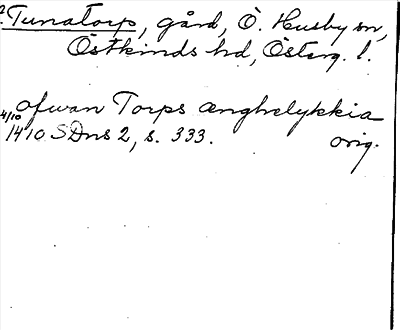 Tunatorp, gård, Ö. Husby sn,
Östkinds hd, Österg. l.
ofwan Torps ænghelykkia
4/10 1410 SDns 2, s. 333. orig.